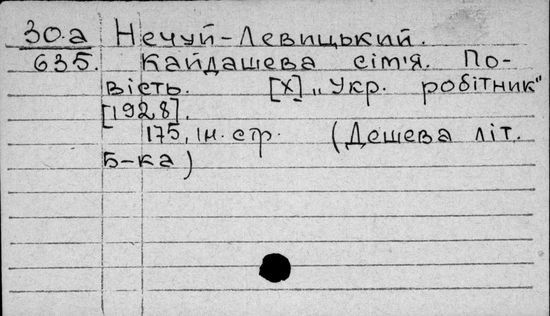 30.а Нечуй-Левицький.
635. Кайдашева сім'я. По-
вість. [Х] „Укр. робітник"
[1928].
175, ін. стр. (Дешева літ.
Б-ка)